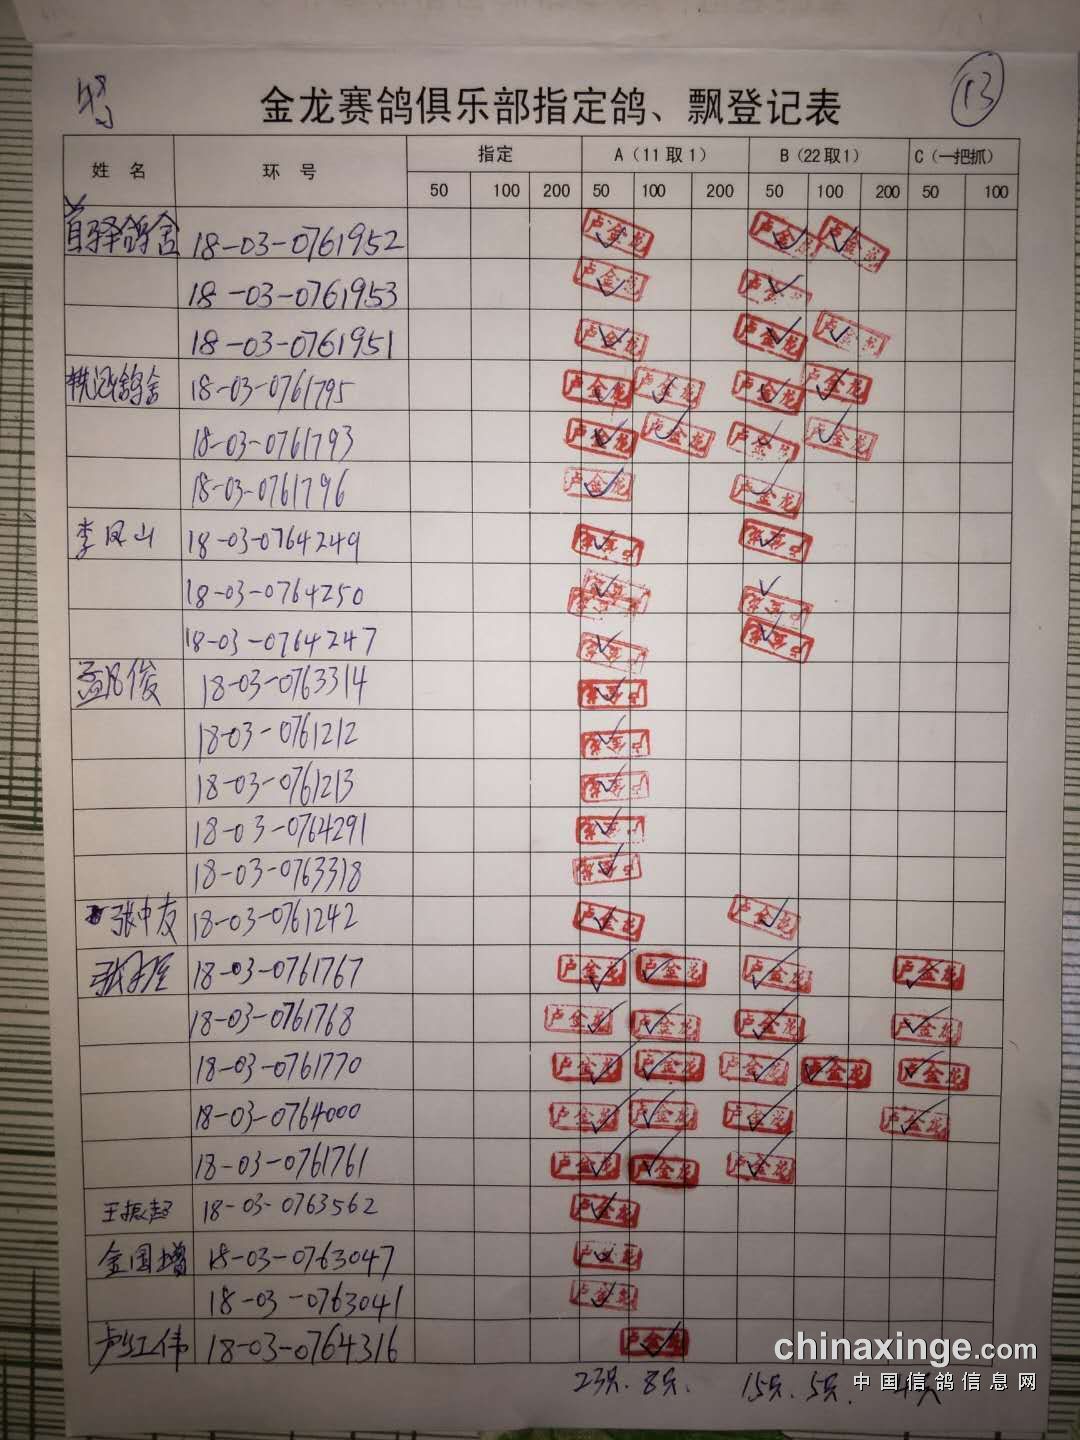 13
金龙赛鸽俱乐部指定鸽、飘登记表
姓名 环号 指定 A(11取1) B(22取1) C(一把抓)
50 100 200 50 100 200 50 100 200 50 100
鸽舍 18-03-0761952 卢金龙 卢金龙 卢金龙
18-03-0761953 卢金龙 卢金龙
18-03-0761951 卢金龙 卢金龙 卢金龙
鸽舍 18-03-0761795 卢金龙 卢金龙 卢金龙 卢金龙
18-03-0761793 卢金龙 卢金龙 卢金龙 卢金龙
18-03-0761796 卢金龙 卢金龙
李凤山 18-03-0764249 卢金龙 卢金龙
18-03-0764250 卢金龙 卢金龙
18-03-0764247 卢金龙 卢金龙
孟凡俊 18-03-0763314 卢金龙
18-03-0761212 卢金龙
18-03-0761213 卢金龙
18-03-0764291 卢金龙
18-03-0763318 卢金龙
张中友 18-03-0761242 卢金龙 卢金龙
张 18-03-0761767 卢金龙 卢金龙 卢金龙 卢金龙
18-03-0761768 卢金龙 卢金龙 卢金龙 卢金龙
18-03-0761770 卢金龙 卢金龙 卢金龙 卢金龙 卢金龙
18-03-0764000 卢金龙 卢金龙 卢金龙 卢金龙
18-03-0761761 卢金龙 卢金龙 卢金龙
王振超 18-03-0763562 卢金龙
金国增 18-03-0763047 卢金龙
18-03-0763041 卢金龙
卢红伟 18-03-0764316 卢金龙
23只. 8只. 15只. 5只. 4只
chinaxinge.com
中国信鸽信息网